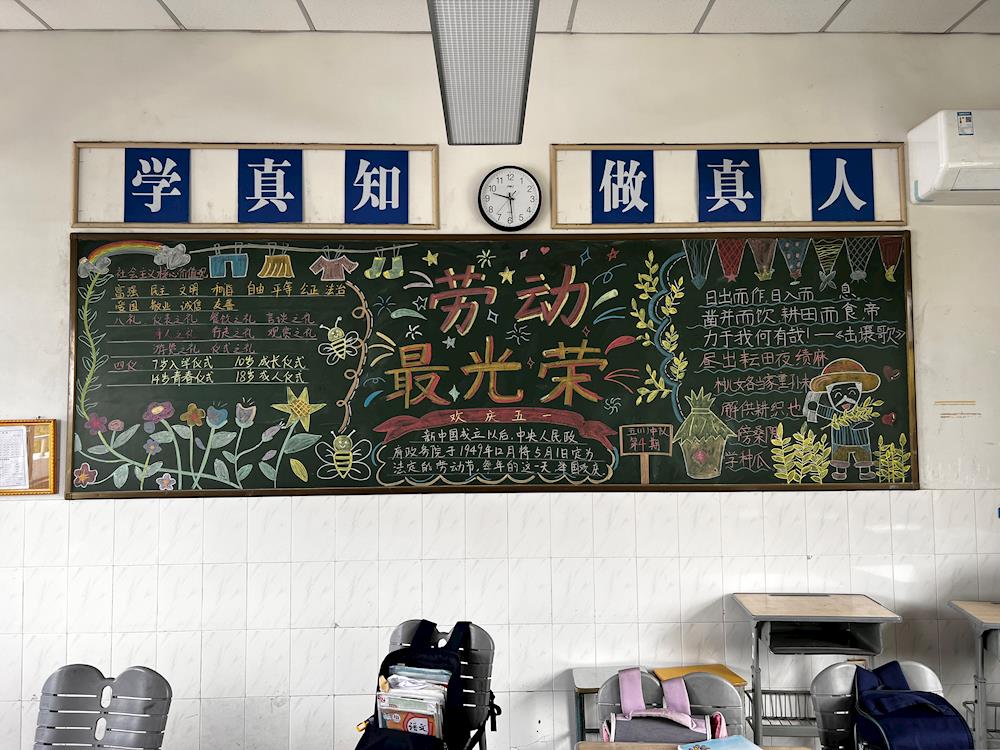 学真知
做真人
社会主义核心价值观
富强 民主 文明 和谐 自由 平等 公正 法治
爱国 敬业 诚信 友善
八礼 仪表之礼 餐饮之礼 言谈之礼
待人之礼 行走之礼 观赏之礼
游览之礼 仪式之礼
四仪 7岁入学仪式 10岁成长仪式
14岁青春仪式 18岁成人仪式
劳动
最光荣
欢庆五一
新中国成立以后,中央人民政
府政务院于1949年12月将5月1日定为
法定的劳动节,每年的这一天,举国欢庆
五川中队
第十期
日出而作,日入而息,
凿井而饮,耕田而食,帝
力于我何有哉!—《击壤歌》
昼出耘田夜绩麻
村儿女各当家童孙未
解供耕织也
傍桑
学种瓜
语文